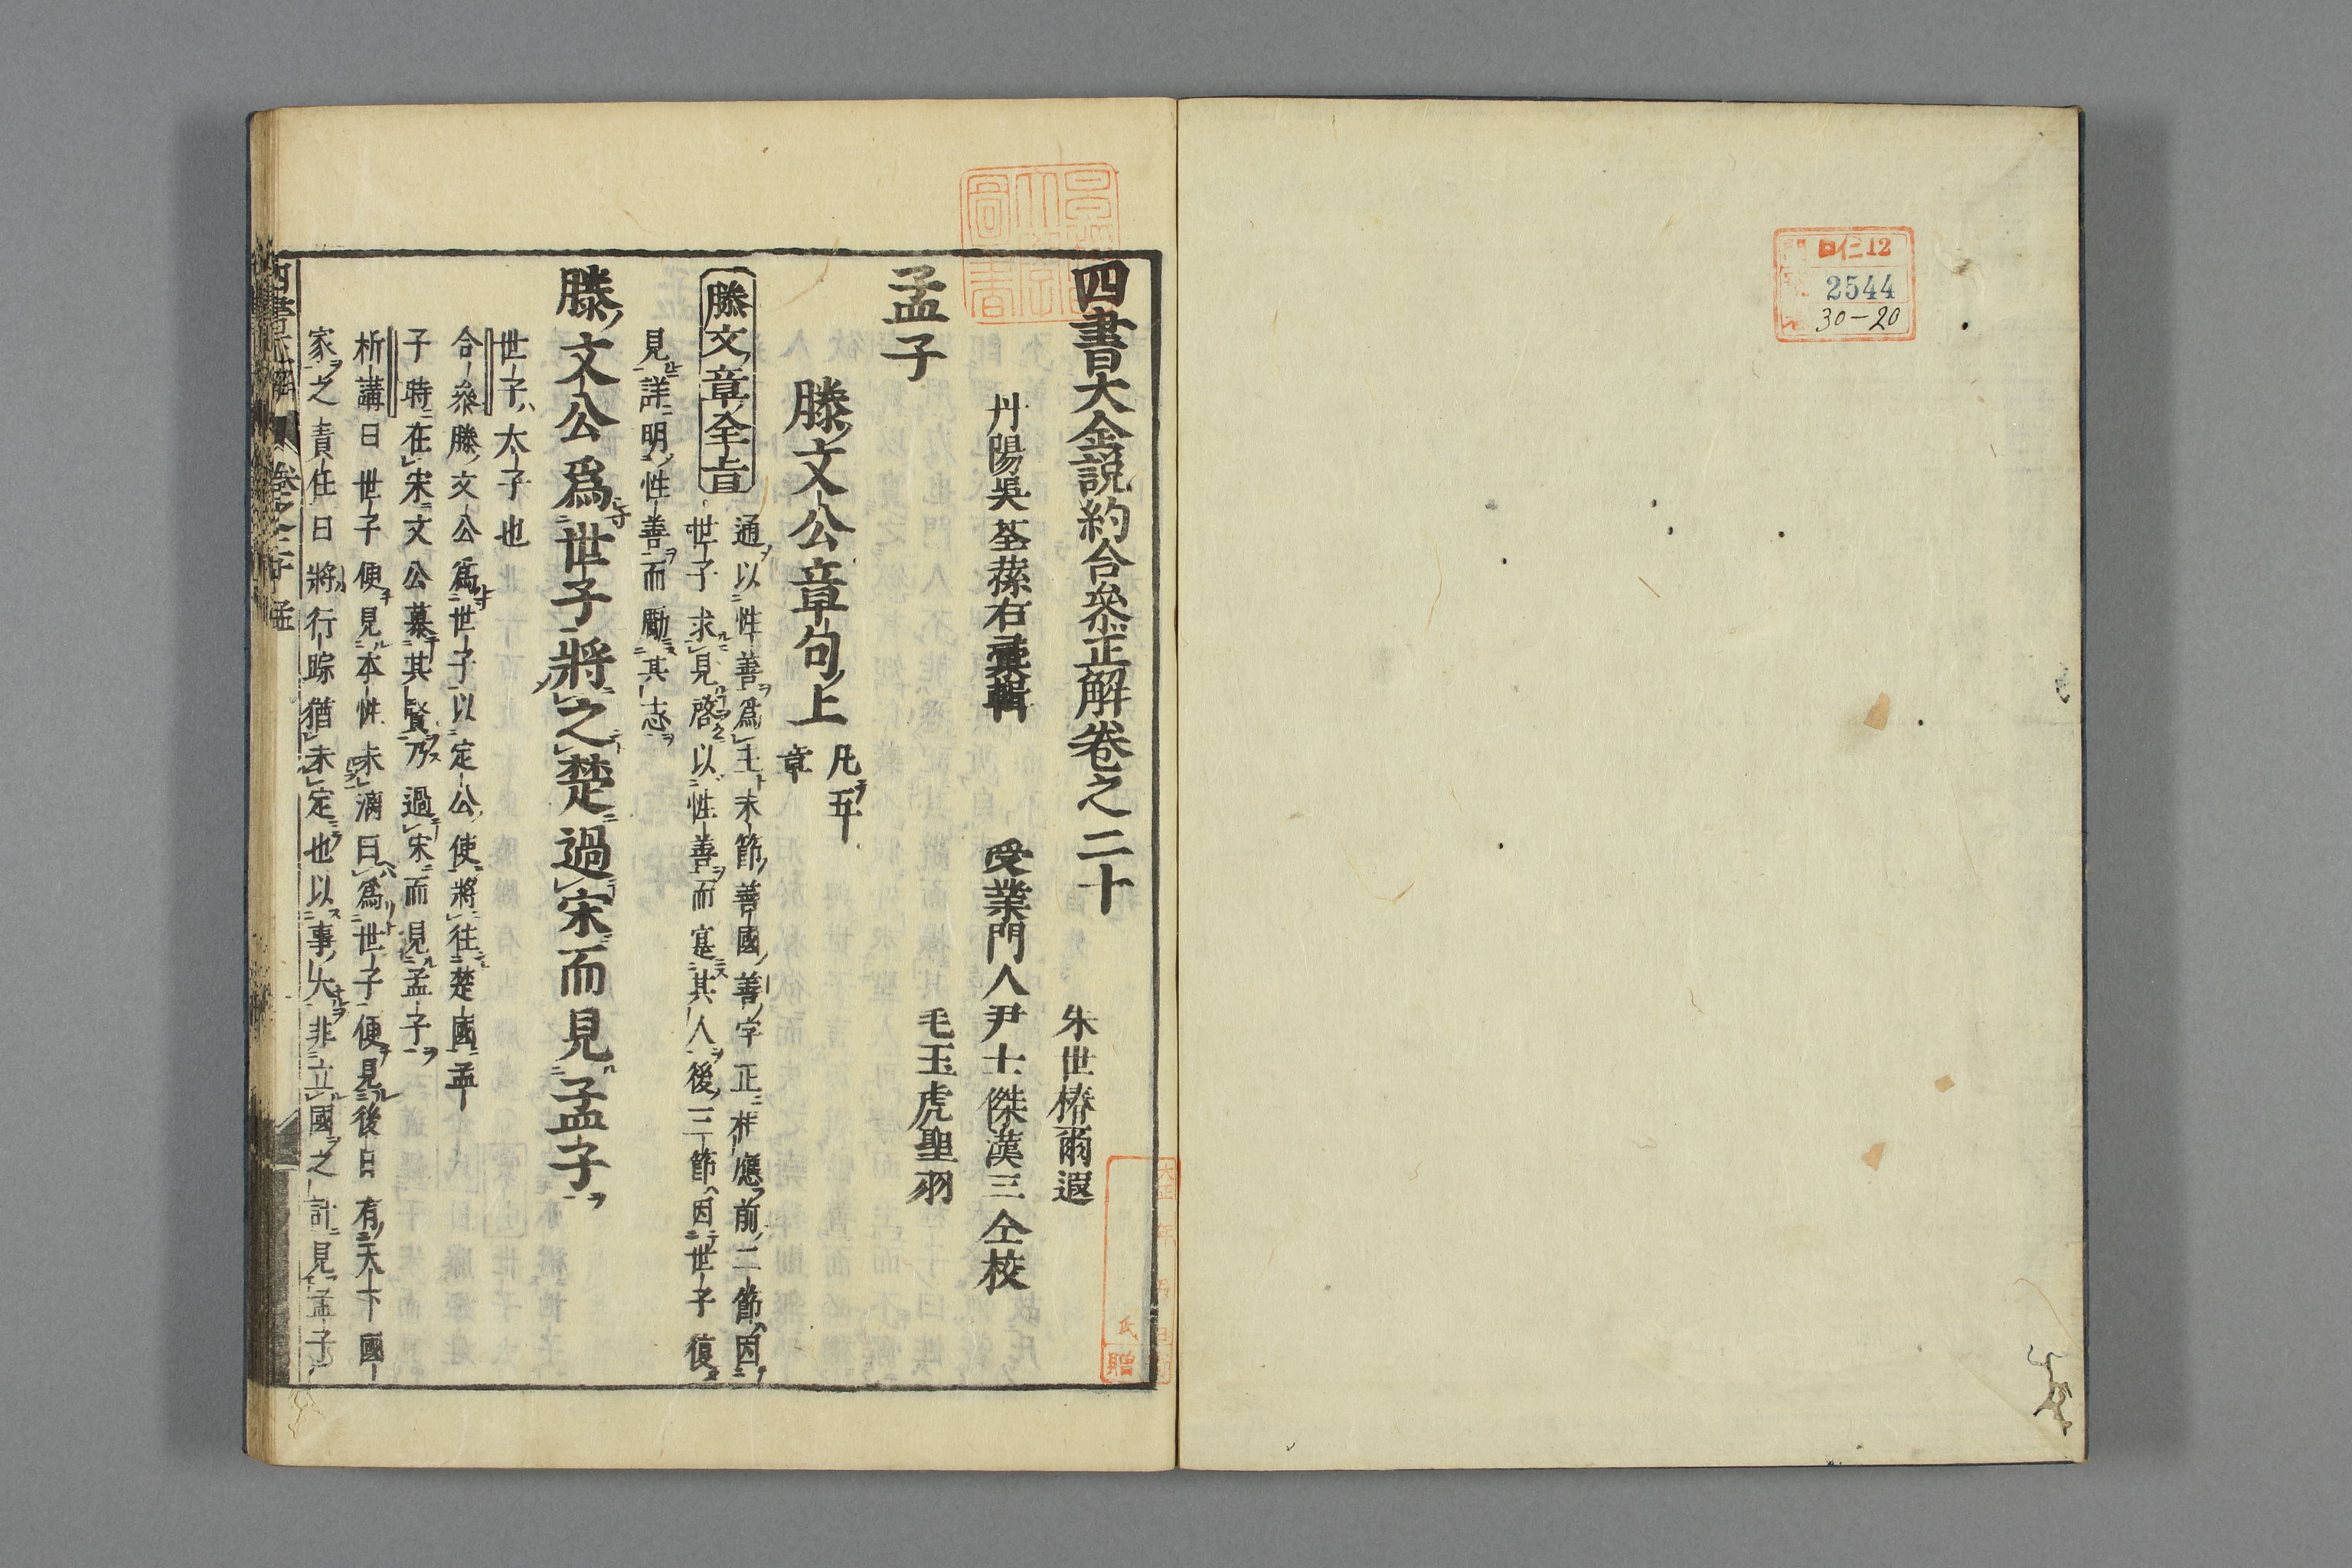 仁12
2544
30-20
四書大全説約合參正解卷之二十
丹陽吳荃蓀右彙輯
朱世椿爾遐
受業門人尹士傑漢三仝校
毛玉虎聖羽
孟子
滕文公章句上
凡五
章
滕文章全旨
通以性善爲主末節善國善字正相應前二節因
世子求見啓以性善而寔其人後三節因世子復
見詳明性善而勵其志
滕文公爲世子將之楚過宋而見孟子
世子太子也
合參滕文公爲世子以定公使將往楚國孟
子時在宋文公慕其賢乃過宋而見孟子
析講曰世子便見本性未漓曰爲世子便見後日有天下國
家之責任曰將行踪猶未定也以事大非立國之計見孟子
贈